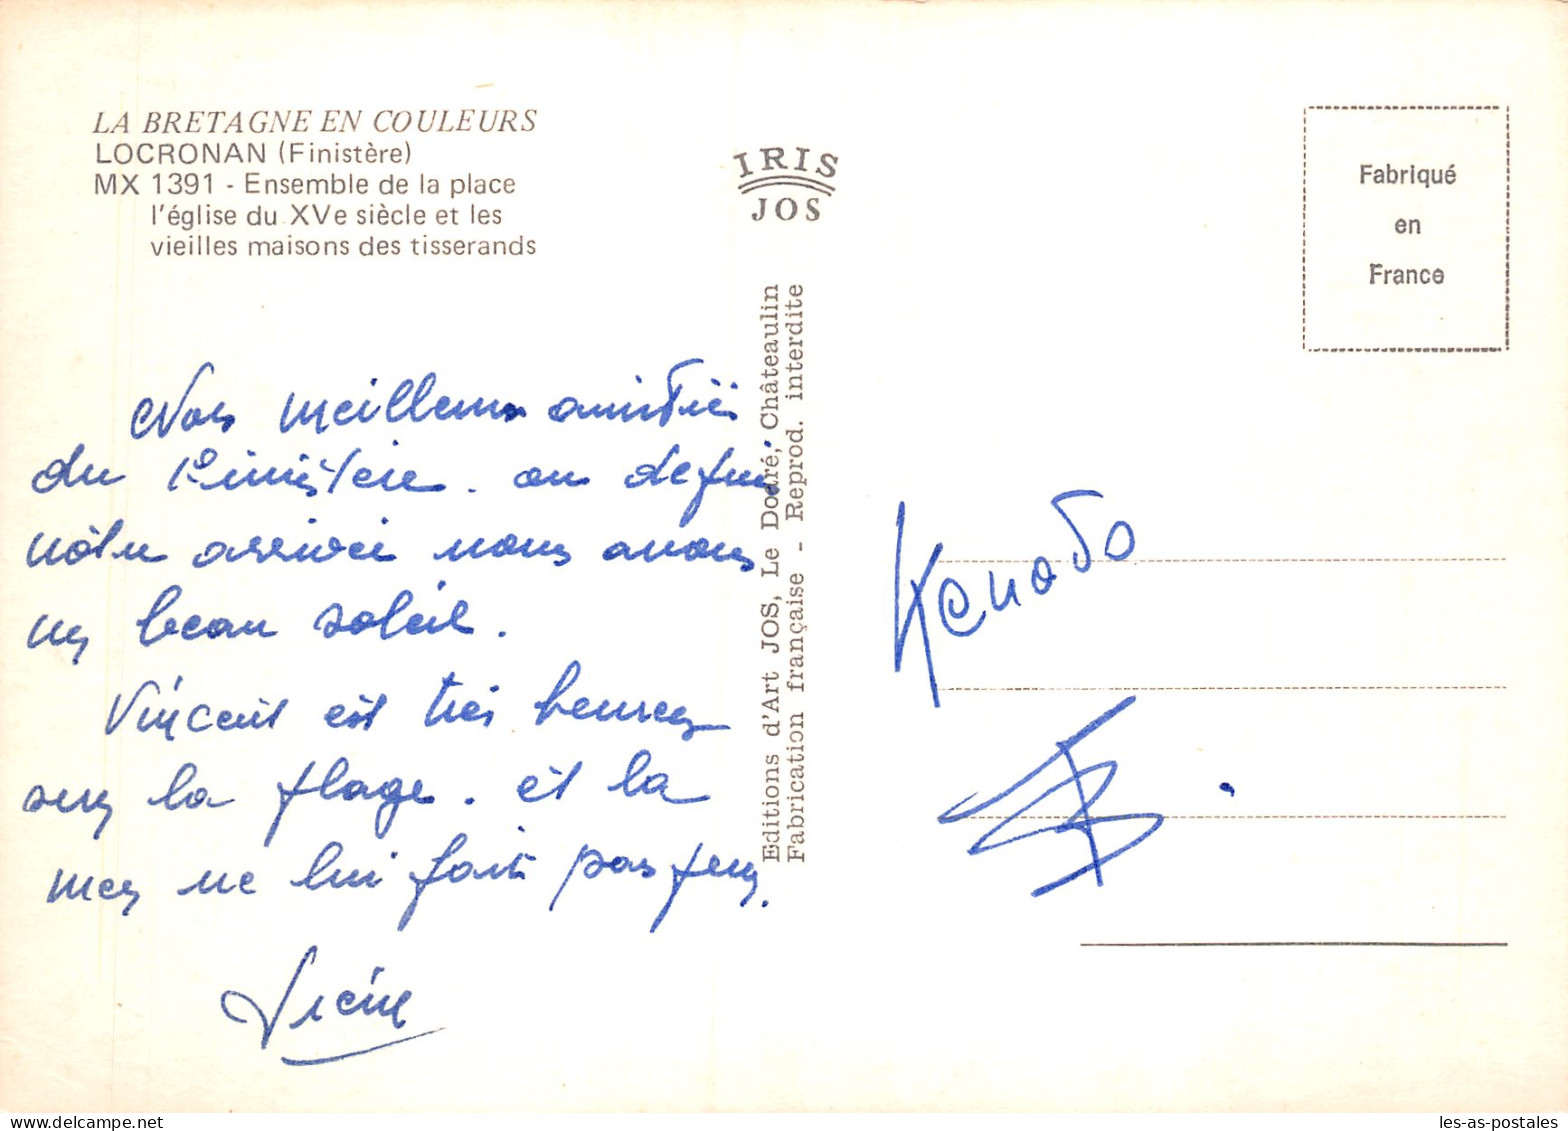 LA BRETAGNE EN COULEURS
LOCRONAN (Finistère)
MX 1391 - Ensemble de la place
l'église du XVe siècle et les
vieilles maisons des tisserands
IRIS
JOS
Fabriqué
en
France
Editions d'Art JOS, Le Doaré, Châteaulin
Fabrication française - Reprod. interdite
Nos meilleures amitiés
du Finistère. on depuis
nôtre arrivée nous avons
un beau soleil.
Vincent est très heureux
sur la plage. et la
mer ne lui fait pas peur.
les-as-postales